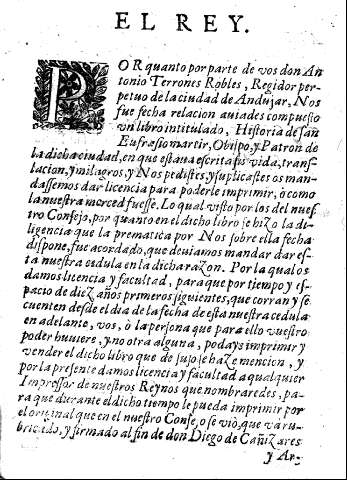 EL REY.
POR quanto por parte de vos don An
tonio Terrones Robles, Regidor per-
petuo de la ciudad de Andujar, Nos
fue fecha relacion auiades compuesto
vn libro intitulado, Historia de san
Eufrasio martir, Obispo, y Patron de
la dicha ciudad, en que estaua escrita su vida, trans-
lacion, y milagros, y Nos pedistes, y suplicastes os man-
dassemos dar licencia para poderle imprimir, ò como
la nuestra merced fuesse. Lo qual visto por los del nues-
tro Consejo, por quanto en el dicho libro se hizo la di-
ligencia que la prematica por Nos sobre ella fecha
dispone, fue acordado, que deuiamos mandar dar es-
ta nuestra cedula en la dicha razon. Por la qual os
damos licencia y facultad, para que por tiempo y es-
pacio de diez años primeros siguientes, que corran y se
cuenten desde el dia de la fecha de esta nuestra cedula
en adelante, vos, ò la persona que para ello vuestro
poder huuiere, y no otra alguna, podays imprimir y
vender el dicho libro que de suso se haze mencion, y
por la presente damos licencia y facultad a qualquier
Impressor de nuestros Reynos que nombraredes, pa-
ra que durante el dicho tiempo le pueda imprimir por
el original que en el nuestro Consejo se viò, que va ru-
bricado, y firmado al fin de don Diego de Cañizares
y Ar-